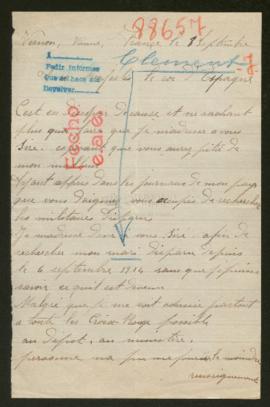 88657
Vernon, France le 1 Septembre
A
Pedir informes
Devolver
Clement
J.
le roi d'Espagne
C'est en désespoir de cause et ne sachant
plus que faire que je m'adresse a vous
Sire, que vous aurez pitié de
mon
Fecho
Ayant appris dans les journaux de mon pays
que vous daignez vous occuper de rechercher
les militaires disparus
Je m'adresse donc a vous Sire afin de
rechercher mon mari disparu depuis
le 6 septembre 1914 sans que je puisse
savoir ce qu'il est devenu
Malgré que je me sois adressée partout
a toute les Croix Rouge possible
au dépot, au ministère
personne n'a pu me fournir le moindre
renseignement